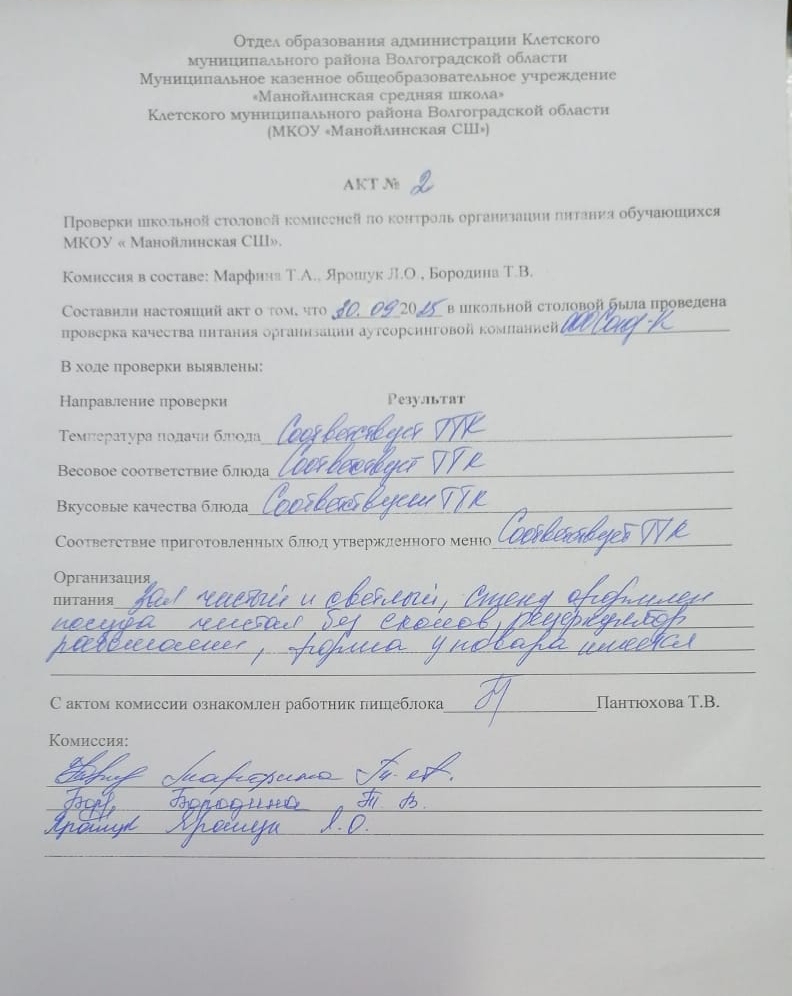 Отдел образования администрации Клетского
муниципального района Волгоградской области
Муниципальное казенное общеобразовательное учреждение
«Манойлинская средняя школа»
Клетского муниципального района Волгоградской области
(МКОУ «Манойлинская СШ»)
АКТ № 2
Проверки школьной столовой комиссией по контроль организации питания обучающихся
МКОУ « Манойлинская СШ».
Комиссия в составе: Марфина Т.А., Ярошук Л.О., Бородина Т.В.
Составили настоящий акт о том, что 30. 09 2025 в школьной столовой была проведена
проверка качества питания организации аутсорсинговой компанией ООО
В ходе проверки выявлены:
Направление проверки Результат
Температура подачи блюда Соответствует ТТК
Весовое соответствие блюда Соответствует ТТК
Вкусовые качества блюда ТТК
Соответствие приготовленных блюд утвержденного меню Соответствует ТТК
Организация
питания Зал чистый и светлый, стенд оформлен
посуда чистая без сколов,
форма у повара имеется
С актом комиссии ознакомлен работник пищеблока Пантюхова Т.В.
Комиссия:
Марфина Т. А.
Бор. Бородина Т. В.
Ярошук Ярошук Л.О.